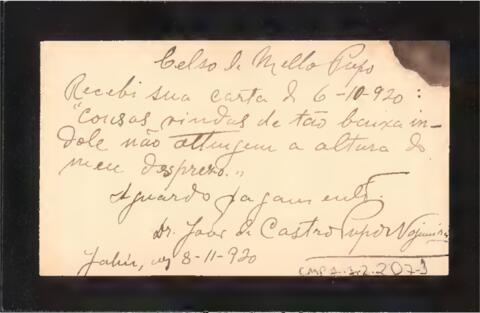 Celso de Mello Pupo
Recebi sua carta de 6-10-920:
"Cousas vindas de tão baixa in-
dole não attingem a altura do
meu desprezo."
Aguardo pagamento.
Dr. João de Castro Pupo Nogueira
Jahú, 8-11-920
CMP 2.3.2.207-1